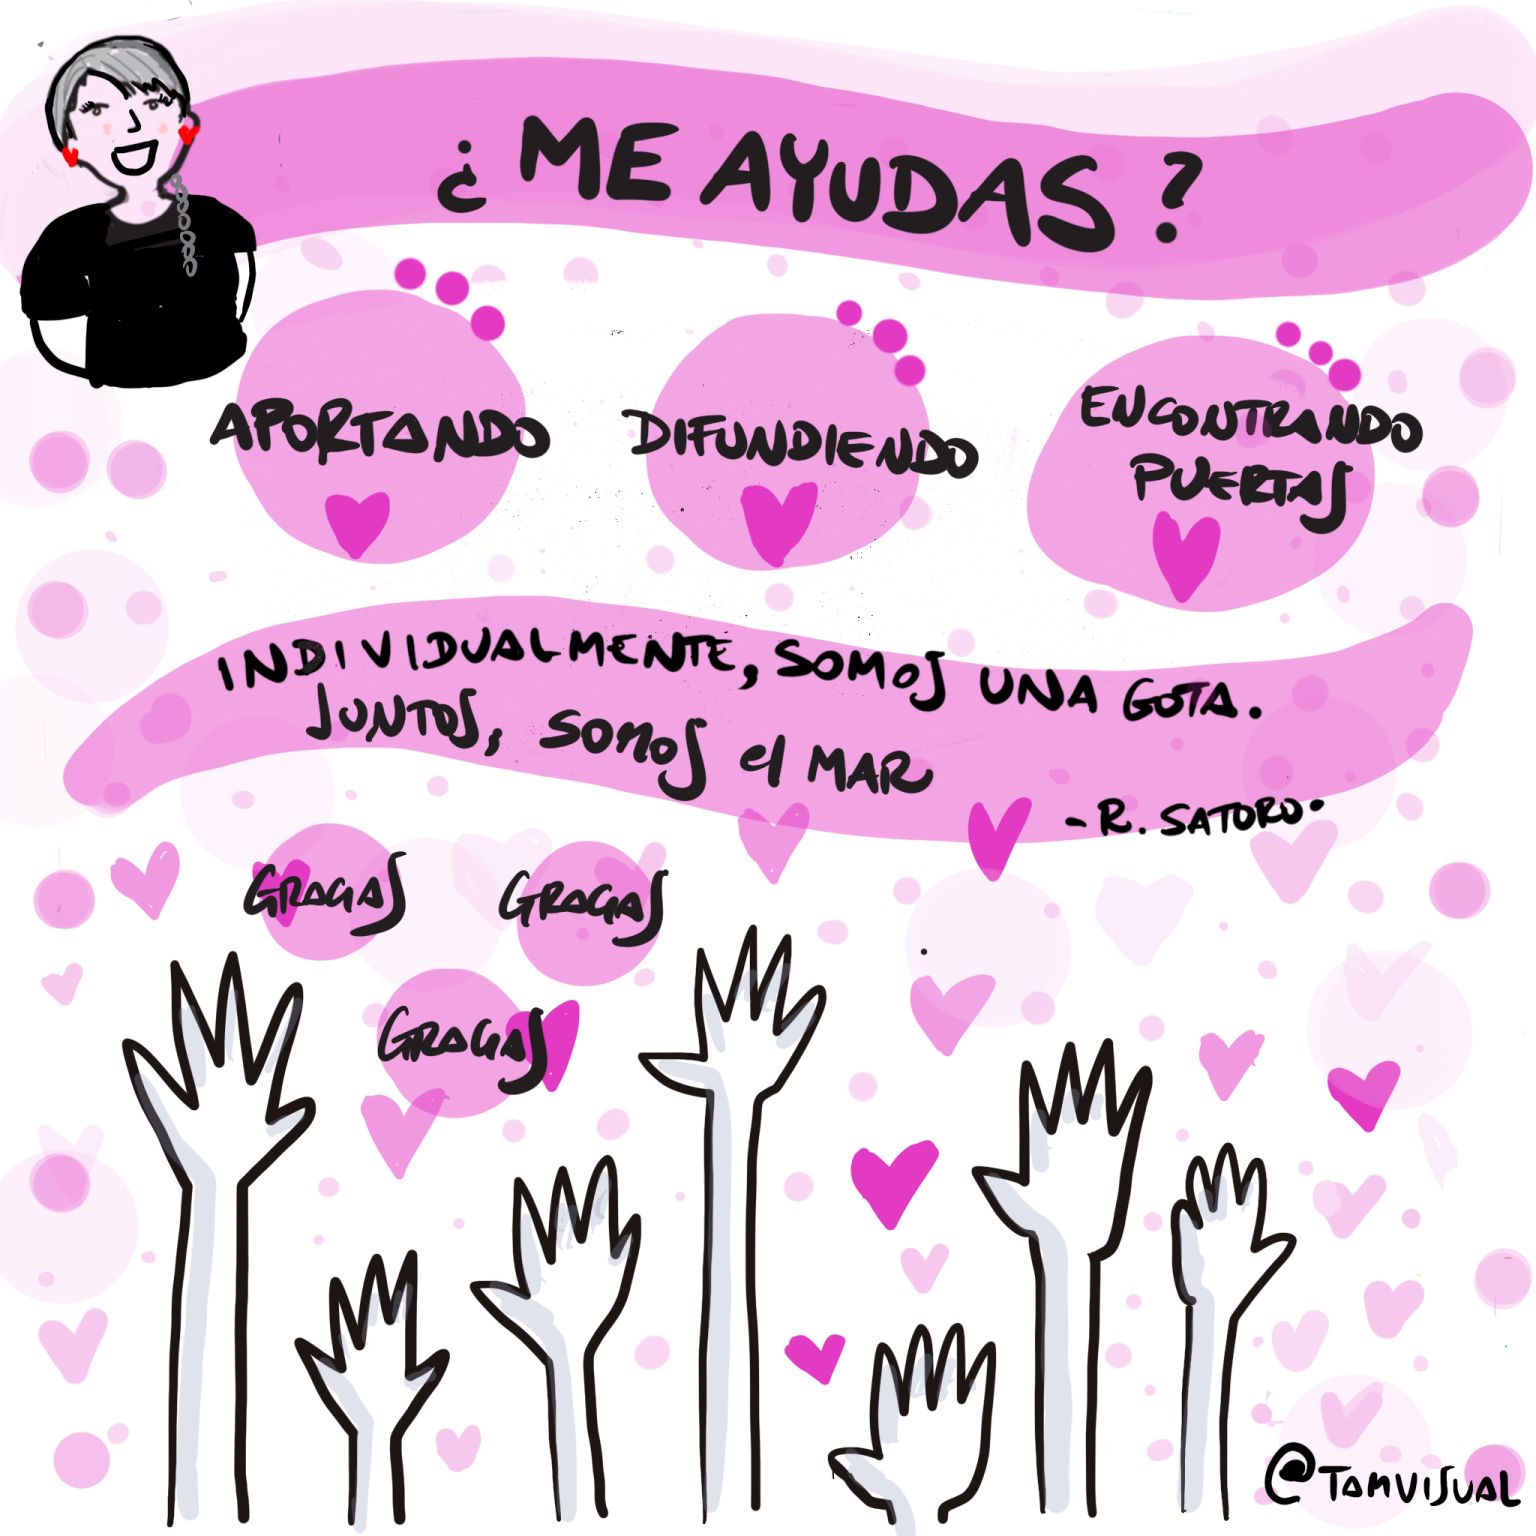 ¿ME AYUDAS?
APORTANDO
DIFUNDIENDO
ENCONTRANDO
PUERTAS
INDIVIDUALMENTE, SOMOS UNA GOTA.
JUNTOS, SOMOS el MAR
- R. SATORO.
GRACIAS
GRACIAS
GRACIAS
@TAMVISUAL